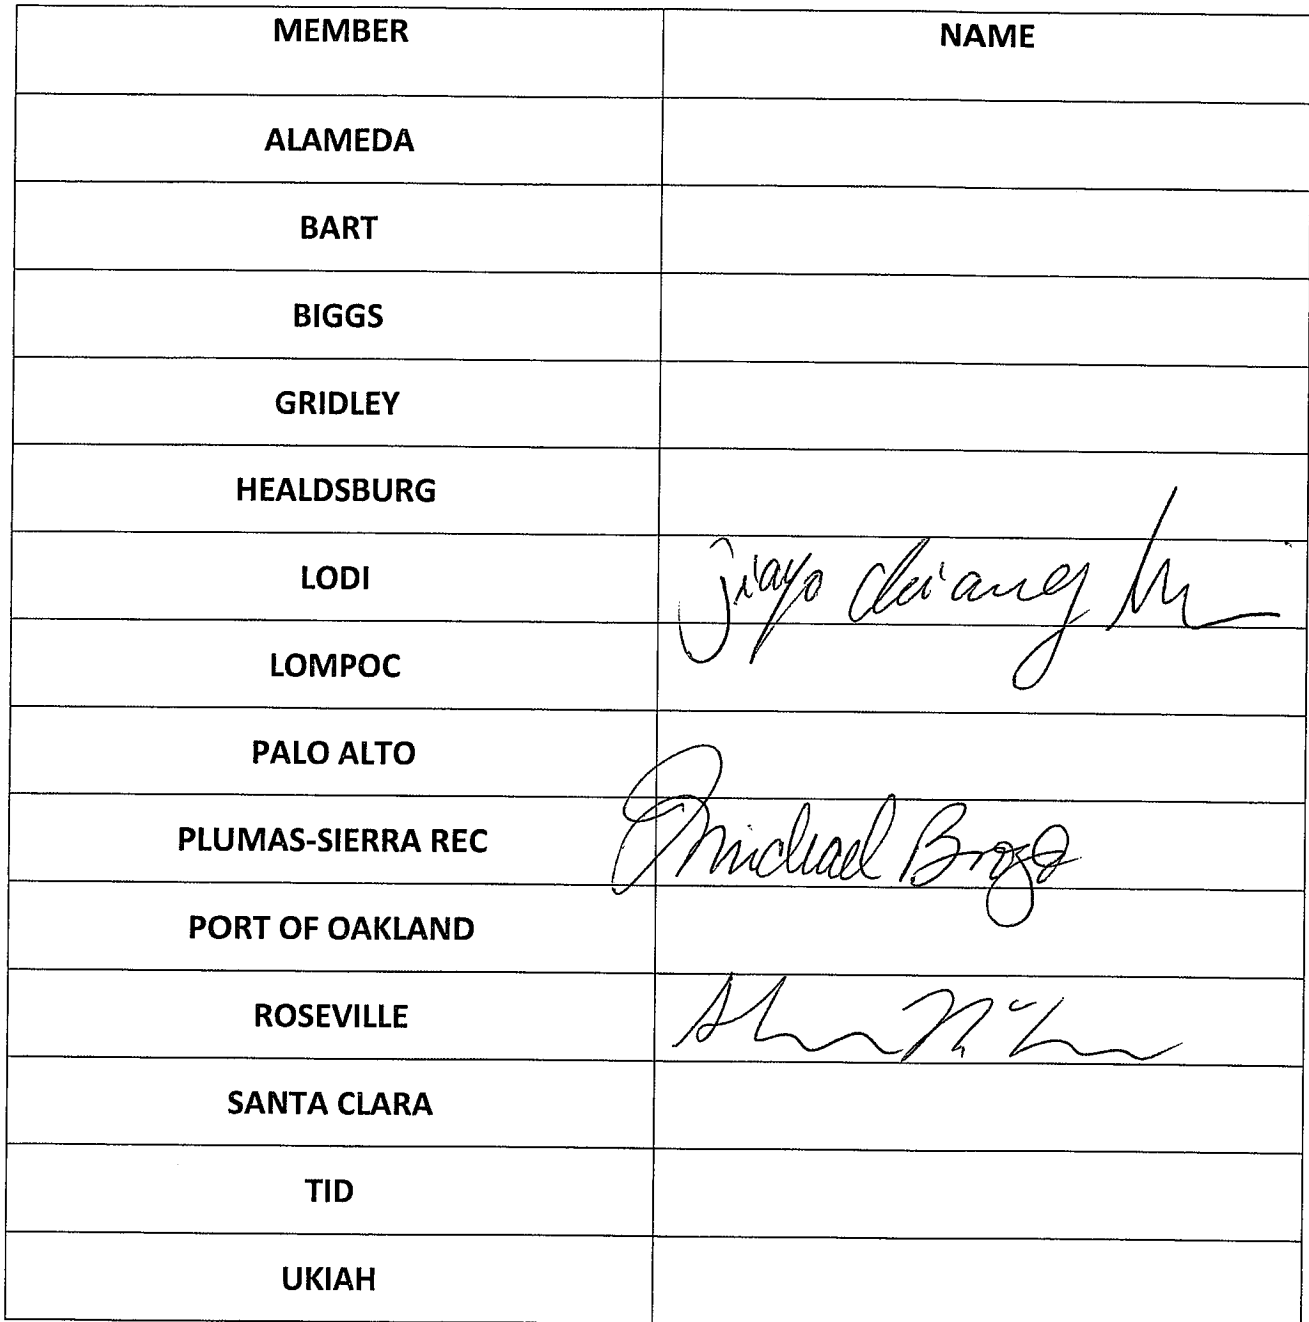 MEMBER NAME
ALAMEDA
BART
BIGGS
GRIDLEY
HEALDSBURG
LODI Jiayo Chiang
LOMPOC
PALO ALTO
PLUMAS-SIERRA REC Michael Brozo
PORT OF OAKLAND
ROSEVILLE
SANTA CLARA
TID
UKIAH